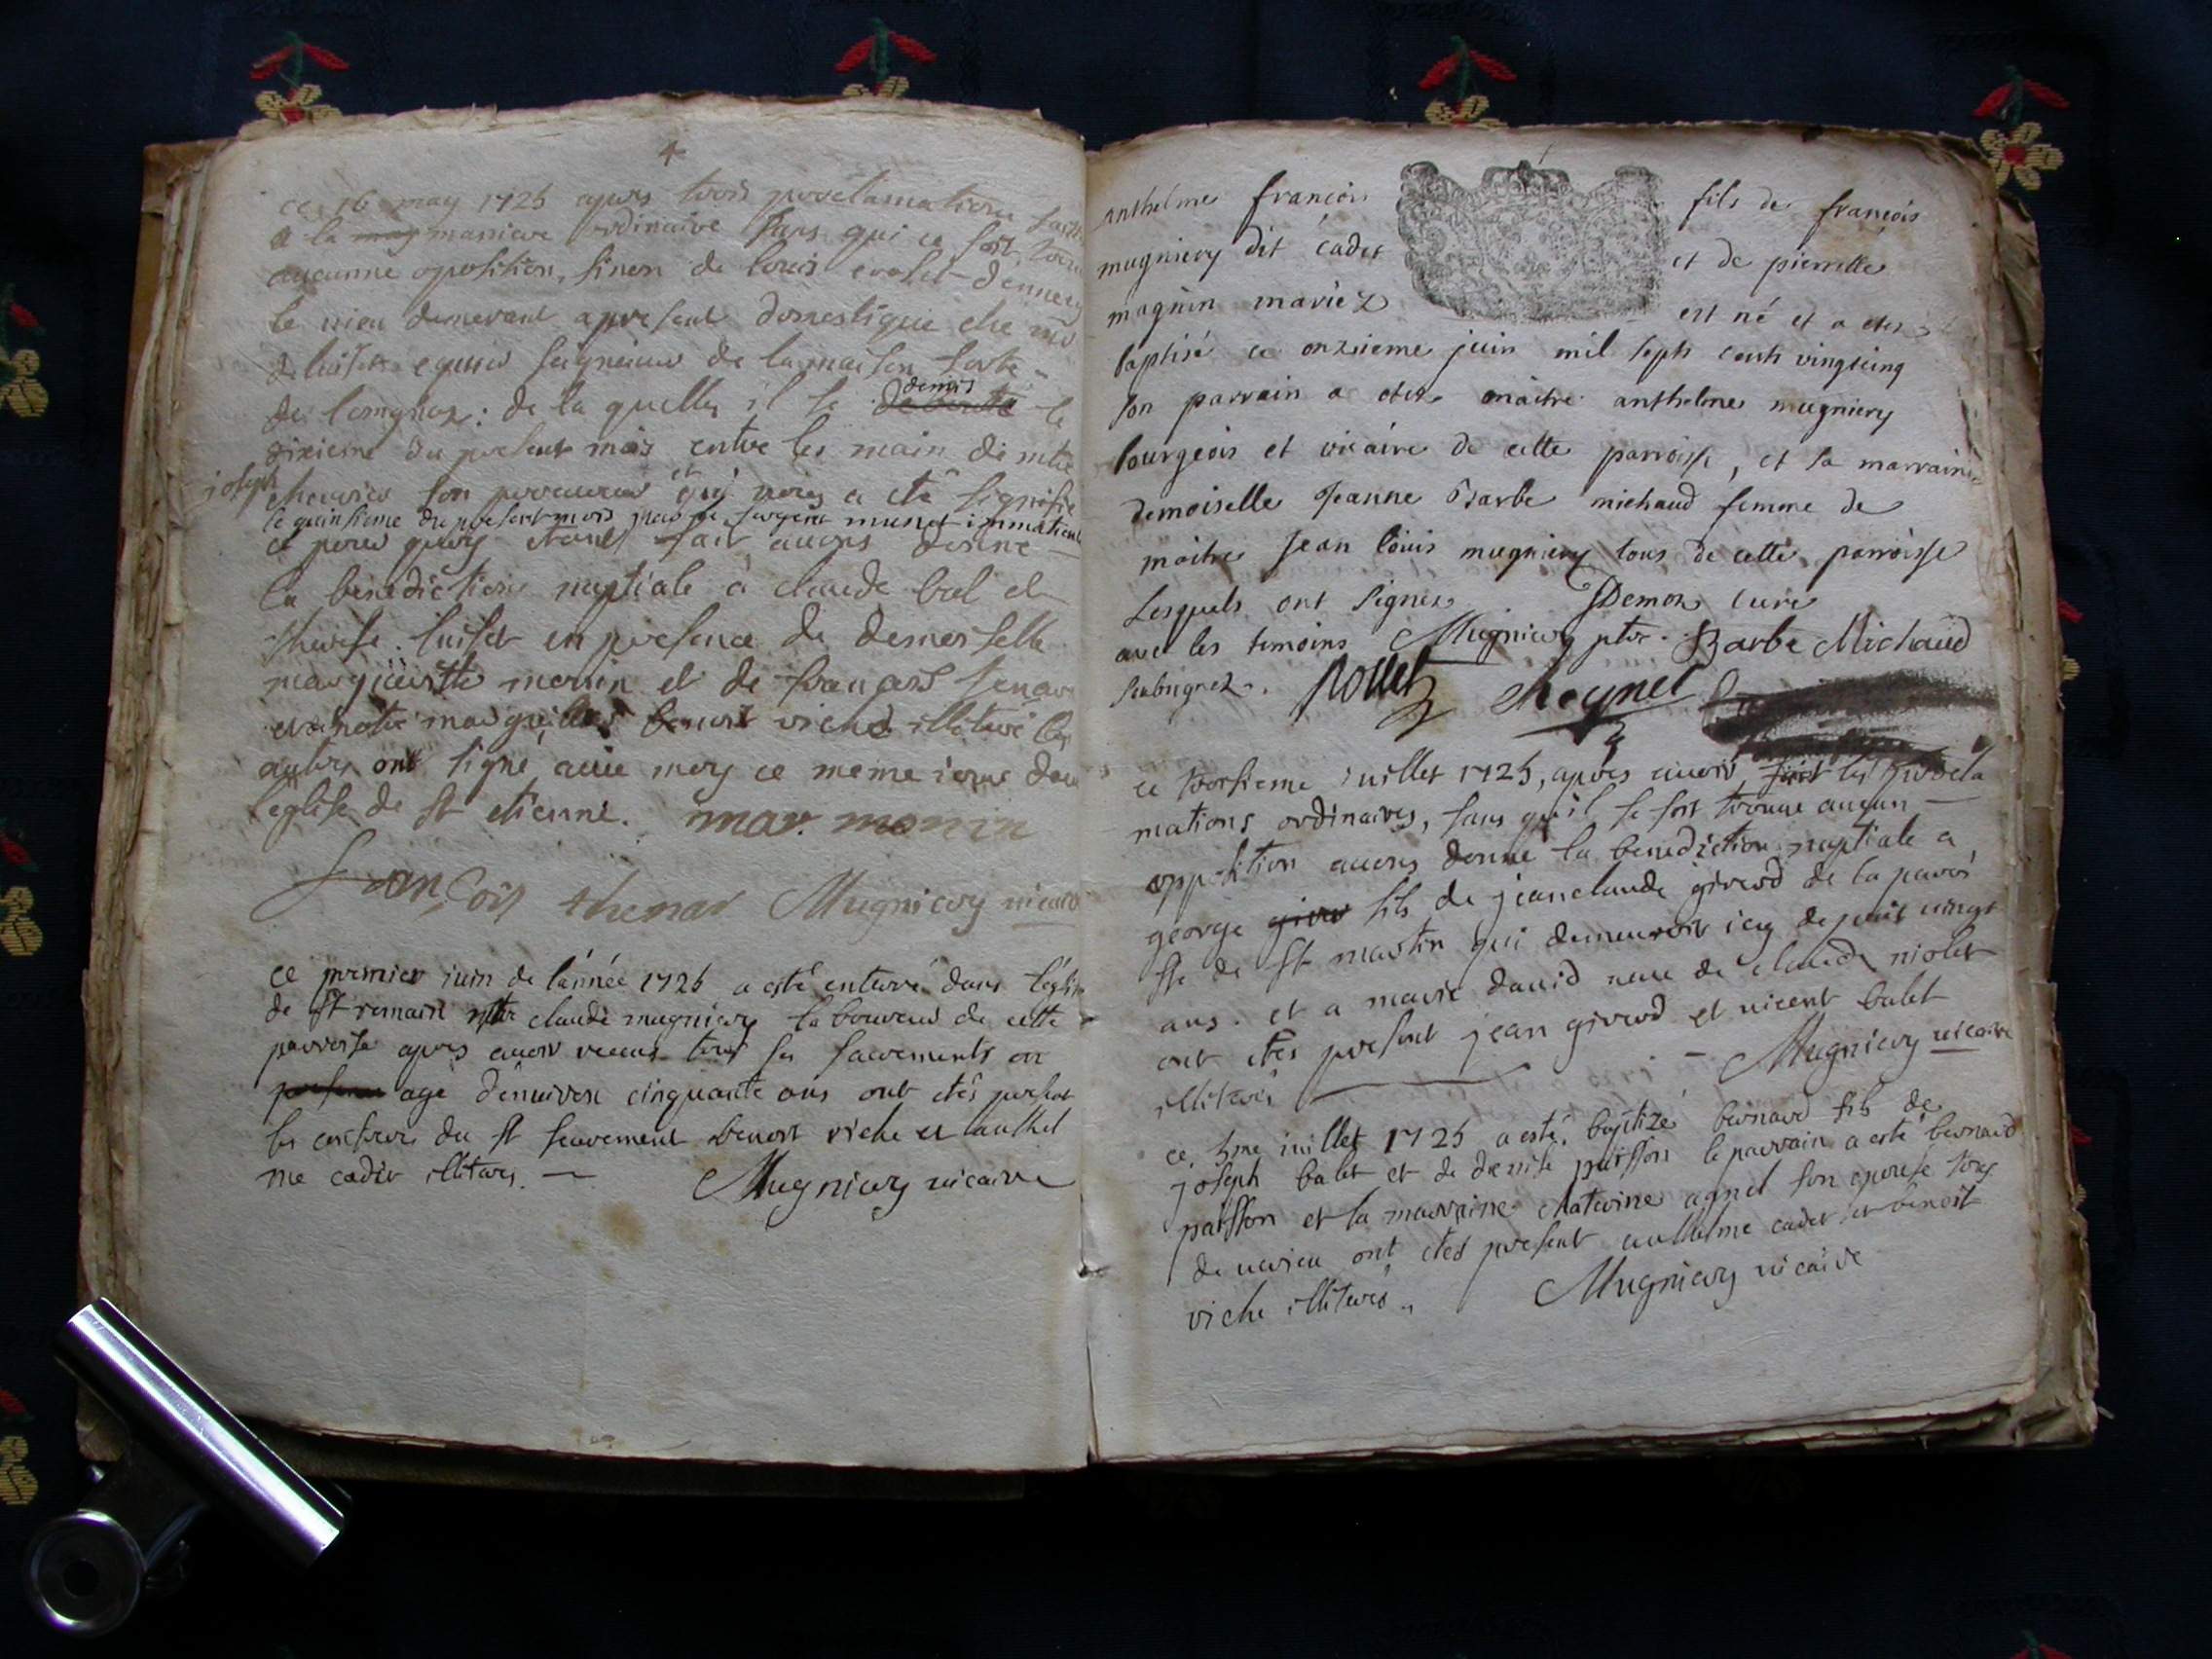 4
ce 16 may 1725 apres trois proclamations
a la may maniere ordinaire sans qui ce soit
aucunne oposition, sinon de louis
le vieu demeurant apresent domestique che mr
equier seigneur de la maison forte
de longnaz: de la quelle il se demis le
dixieme du present mois entre les main de mtre
joseph
son procureur et qui nous a eté signifié
le quinsieme du present mois par
fait avons donné
la benediction nuptiale à claude bal et
therese luiset en presence de demoiselle
marguieritte monin et de françois
et notre marguillier benoit viche illiteré les
autres ont signé avec moy ce meme iour dans
l'eglise de st etienne. mar. monin
françois thenar Mugniery vicaire
ce premier iuin de l'année 1725 a esté enterré dans l'eglise
de st romain claude mugniery laboureur de cette
parroisse apres avoir receus tous ses sacrements
agé d'enuiron cinquante ans ont etés present
les confreres du st sacrement benoit viche et anthel
me cadet illiteres. — Mugniery vicaire
anthelme françois fils de françois
mugniery dit cadet et de pierrette
magnin mariez est né et a etez
baptisé ce onzieme juin mil sept cents vingtcinq
son parrain a etez maitre anthelme mugniery
bourgeois et vicaire de cette parroisse, et sa marraine
demoiselle Jeanne Barbe michaud femme de
maitre Jean louis mugniery tous de cette parroisse
Lesquels ont signez Demoz curé
avec les temoins Mugniery ptre. Barbe Michaud
soubsignez. Rollet
ce troisieme iuillet 1725, apres avoir fait les procla
mations ordinaires, sans qu'il se soit trouve aucun —
opposition avons donné la benediction nuptiale a
george giro fils de jeanclaude girerd de la parroi
sse de st martin qui demeuroit icy depuis vingt
ans. et a marie david veuve de claude niolet
ont etes present jean girerd et vicent balet
illiterés — Mugniery vicaire
ce 5me iuillet 1725 a esté baptizé bernard fils de
joseph balet et de denise paisson le parrain a esté bernard
paisson et la marraine chaterine agnel son epouse tous
de verieu ont etes present anthelme cadet et benoit
viche illiterés. Mugniery vicaire